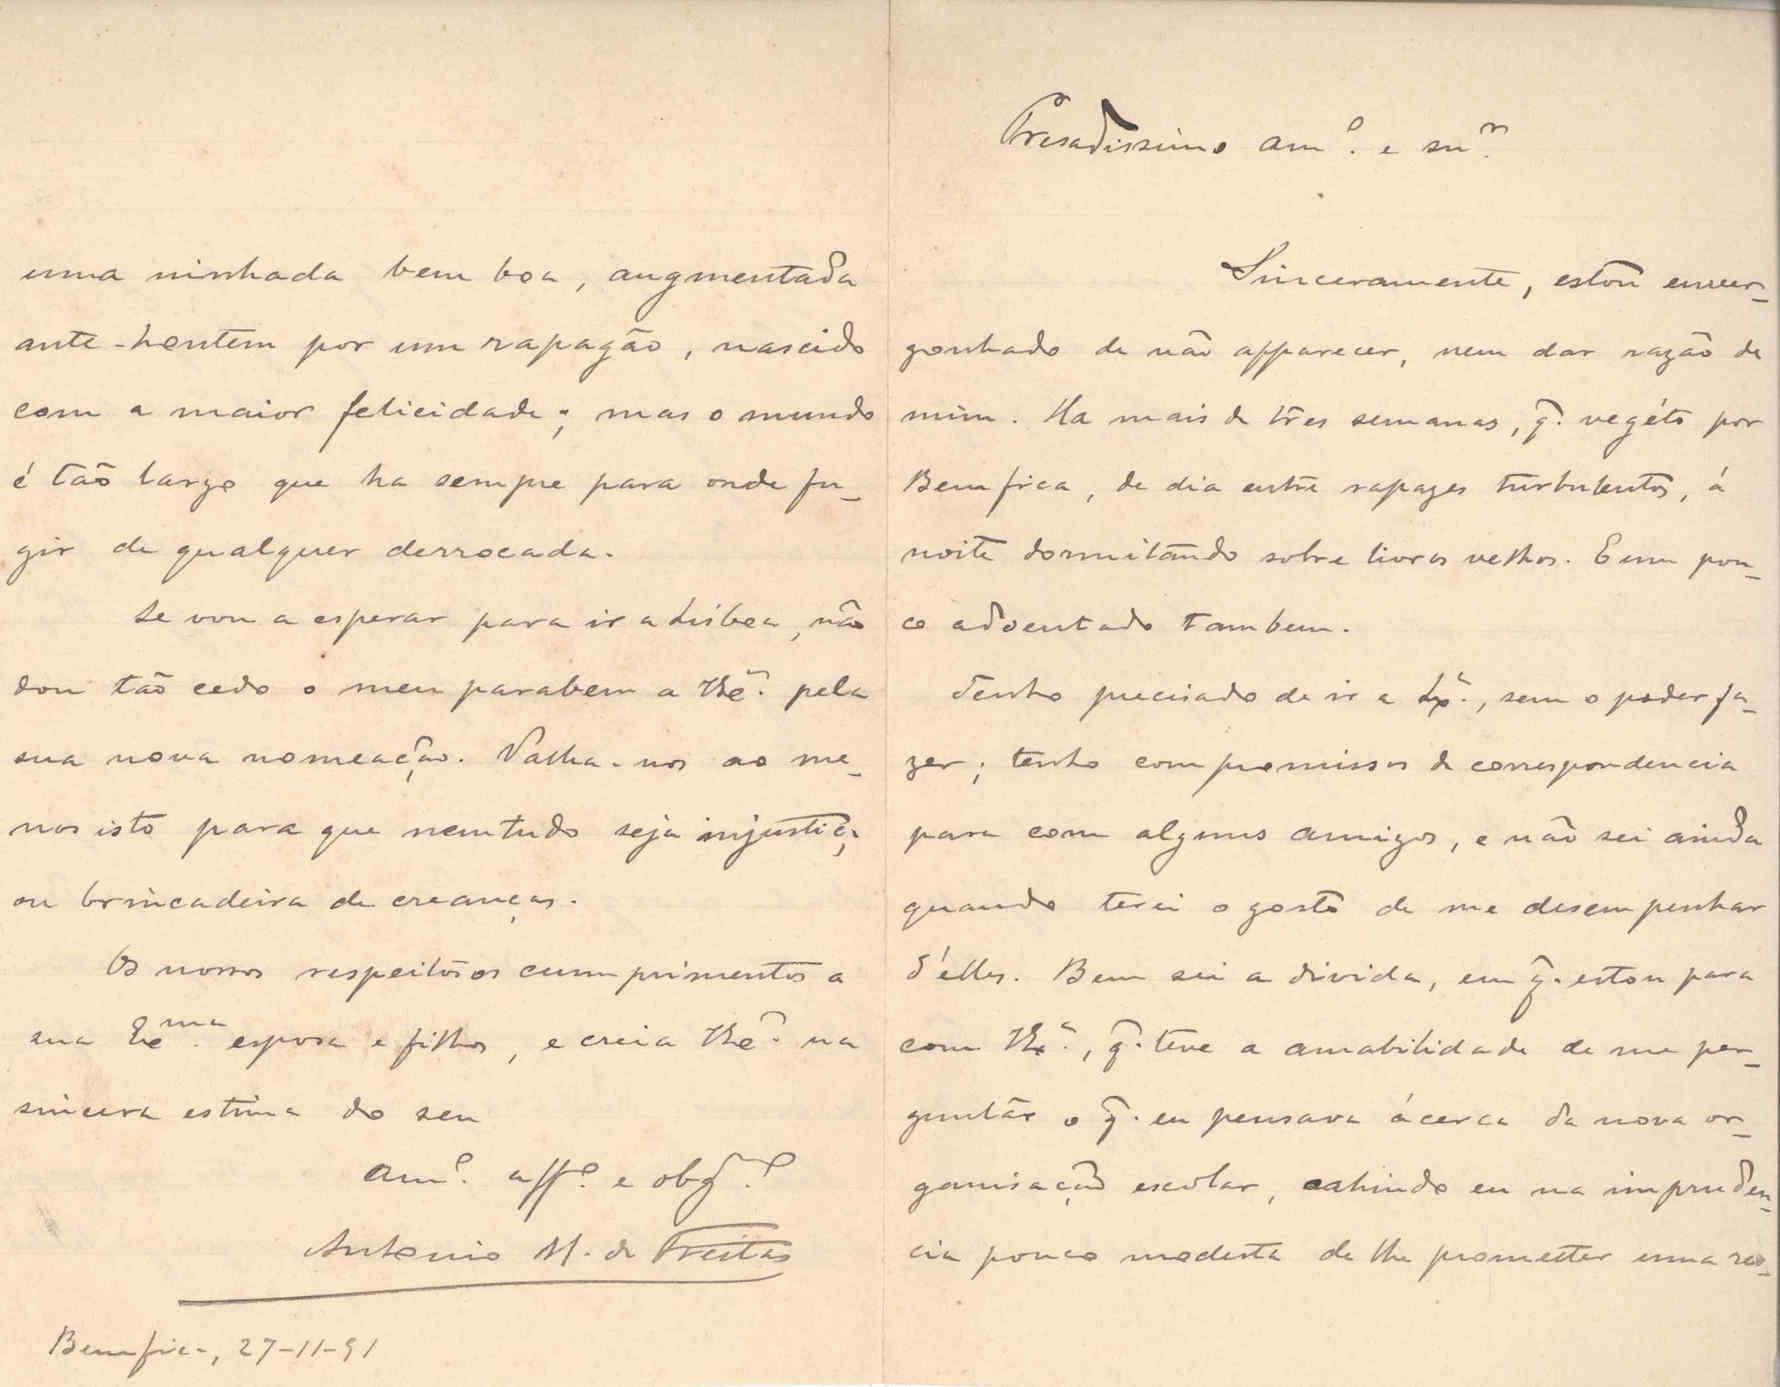 Presadissimo am.º e sn.r
Sinceramente, estou enver-
gonhado de não apparecer, nem dar razão de
mim. Ha mais de tres semanas, q̃. vegéto por
Bemfica, de dia entre rapazes turbulentos, á
noite dormitando sobre livros velhos. E um pou-
co adoentado tambem.
Tenho precisado de ir a Lx.ª, sem o poder fa-
zer; tenho compromissos de correspondencia
para com alguns amigos, e não sei ainda
quando terei o gosto de me desempenhar
d'elles. Bem sei a divida, em q̃. estou para
com V.Ex.ª, q̃. teve a amabilidade de me per-
guntar o q̃. eu pensava ácerca da nova or-
ganisação escolar, cahindo eu na impruden-
cia pouco modesta de lhe prometter uma res-
uma ninhada bem boa, augmentada
ante-hontem por um rapagão, nascido
com a maior felicidade; mas o mundo
é tão largo que ha sempre para onde fu-
gir de qualquer derrocada.
Se vou a esperar para ir a Lisboa, não
dou tão cedo o meu parabem a V.Ex.ª pela
sua nova nomeação. Valha-nos ao me-
nos isto para que nem tudo seja injustiça
ou brincadeira de creanças.
Os nossos respeitosos cumprimentos a
sua Ex.ma esposa e filhos, e creia V.Ex.ª na
sincera estima do seu
am.º aff.º e obg.º
Antonio M. de Freitas
Bemfica, 27-11-91